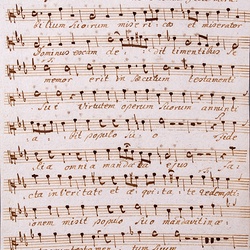 bilium Suorum misericors et miserator
Dominus escam de dit timentibus
memor erit in Sæculum testamenti
Sui Virtutem operum Suorum annunti
a bit populo su o
omnia manda ejus
cta in veritate et æ qui ta te redempti
onem misit populo suo mandavit in æ
tum Suum